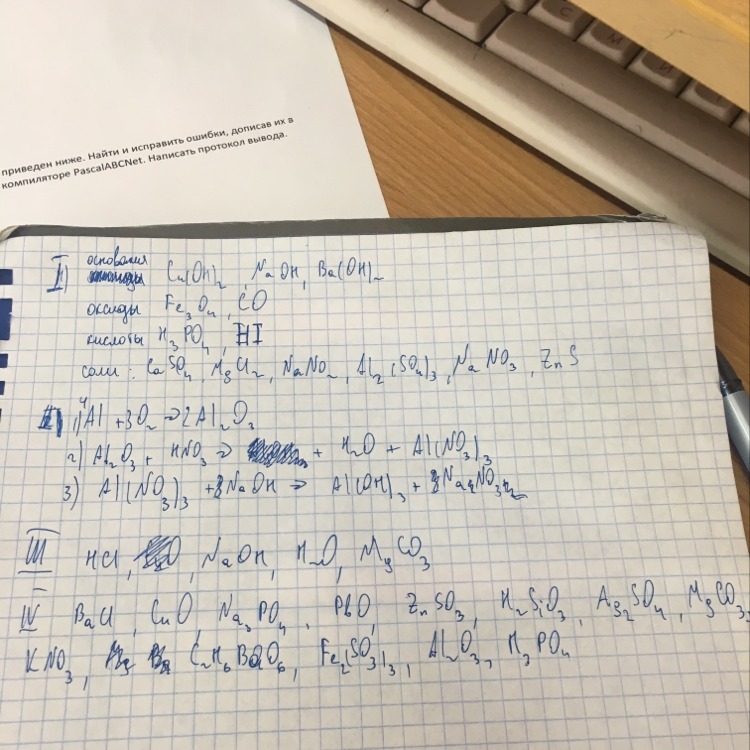 приведен ниже. Найти и исправить ошибки, дописав их в
компиляторе PascalABCNet. Написать протокол вывода.
I) основания Cu(OH)2, NaOH, Ba(OH)2
оксиды Fe3O4, CO
кислоты H3PO4, HI
соли: CaSO4, MgCl2, NaNO2, Al2(SO4)3, NaNO3, ZnS
II) 1) 4Al + 3O2 → 2Al2O3
2) Al2O3 + HNO3 → + H2O + Al(NO3)3
3) Al(NO3)3 + NaOH → Al(OH)3 +
III HCl, NaOH, H2O, MgCO3
IV BaCl, CuO, Na3PO4, PbO, ZnSO3, H2SiO3, Ag2SO4, MgCO3,
KNO3, Fe2(SO3)3, Al2O3, H3PO4